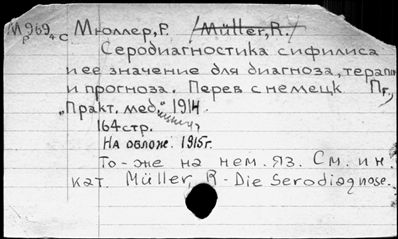 М969 Мюллер, Р. /Müller, R./
р 4с
Серодиагностика сифилиса
и ее значение для диагноза, терапии
и прогноза. Перев с немецк Пг.,
„Практ. мед.“ 1914.
164 стр.
На облож: 1915г.
То-же на нем. яз. См. ин.
кат. Müller, R - Die Serodiagnose.